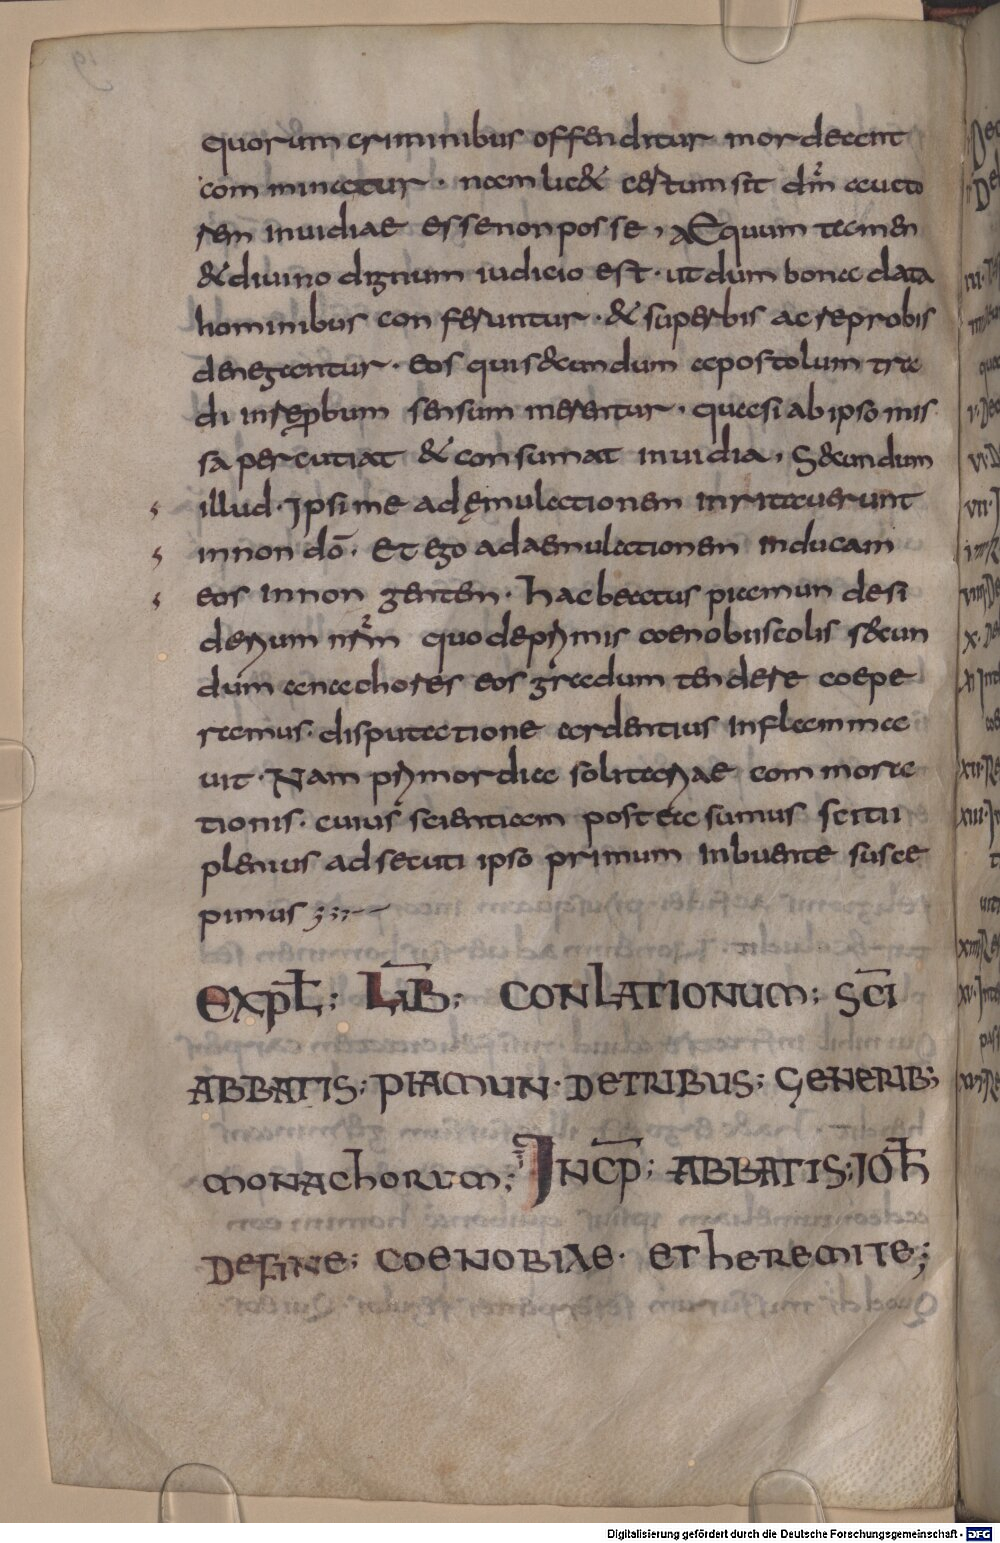 quorum criminibus offenditur mordeat
comminatur · nam licet certum sit dnm aucto
rem inuidiae esse non posse, AEquum tamen
& diuino dignum iudicio est · ut dum bona data
hominibus conferuntur · & superbis ac reprobis
denegantur · eos qui s&cundum apostolum tra
di in repbum sensum merentur · quasi ab ipso mis
sa percutiat & consumat inuidia, S&cundum
illud · Ipsi me ad ęmulationem inritauerunt
in non dō · Et ego ad aemulationem inducam
eos in non gentem · Hac beatus piamun desi
derium nrm quod e primis coenobii scolis s&cun
dum anachoreseos gradum tendere coepe
ramus · disputatione ardentius inflamma
uit · Nam primordia solitariae commora
tionis · cuius scientiam postea sumus scitii
plenius adsecuti ipso primum inbuente susce
pimus
EXPŁ; LIB; CONLATIONUM; SCI
ABBATIS; PIAMUN · DE TRIBUS; GENERIB;
MONACHORUM; INCP; ABBATIS; IOH
DE FINE; COENOBIAE · ET HEREMITE;
Digitalisierung gefördert durch die Deutsche Forschungsgemeinschaft - DFG